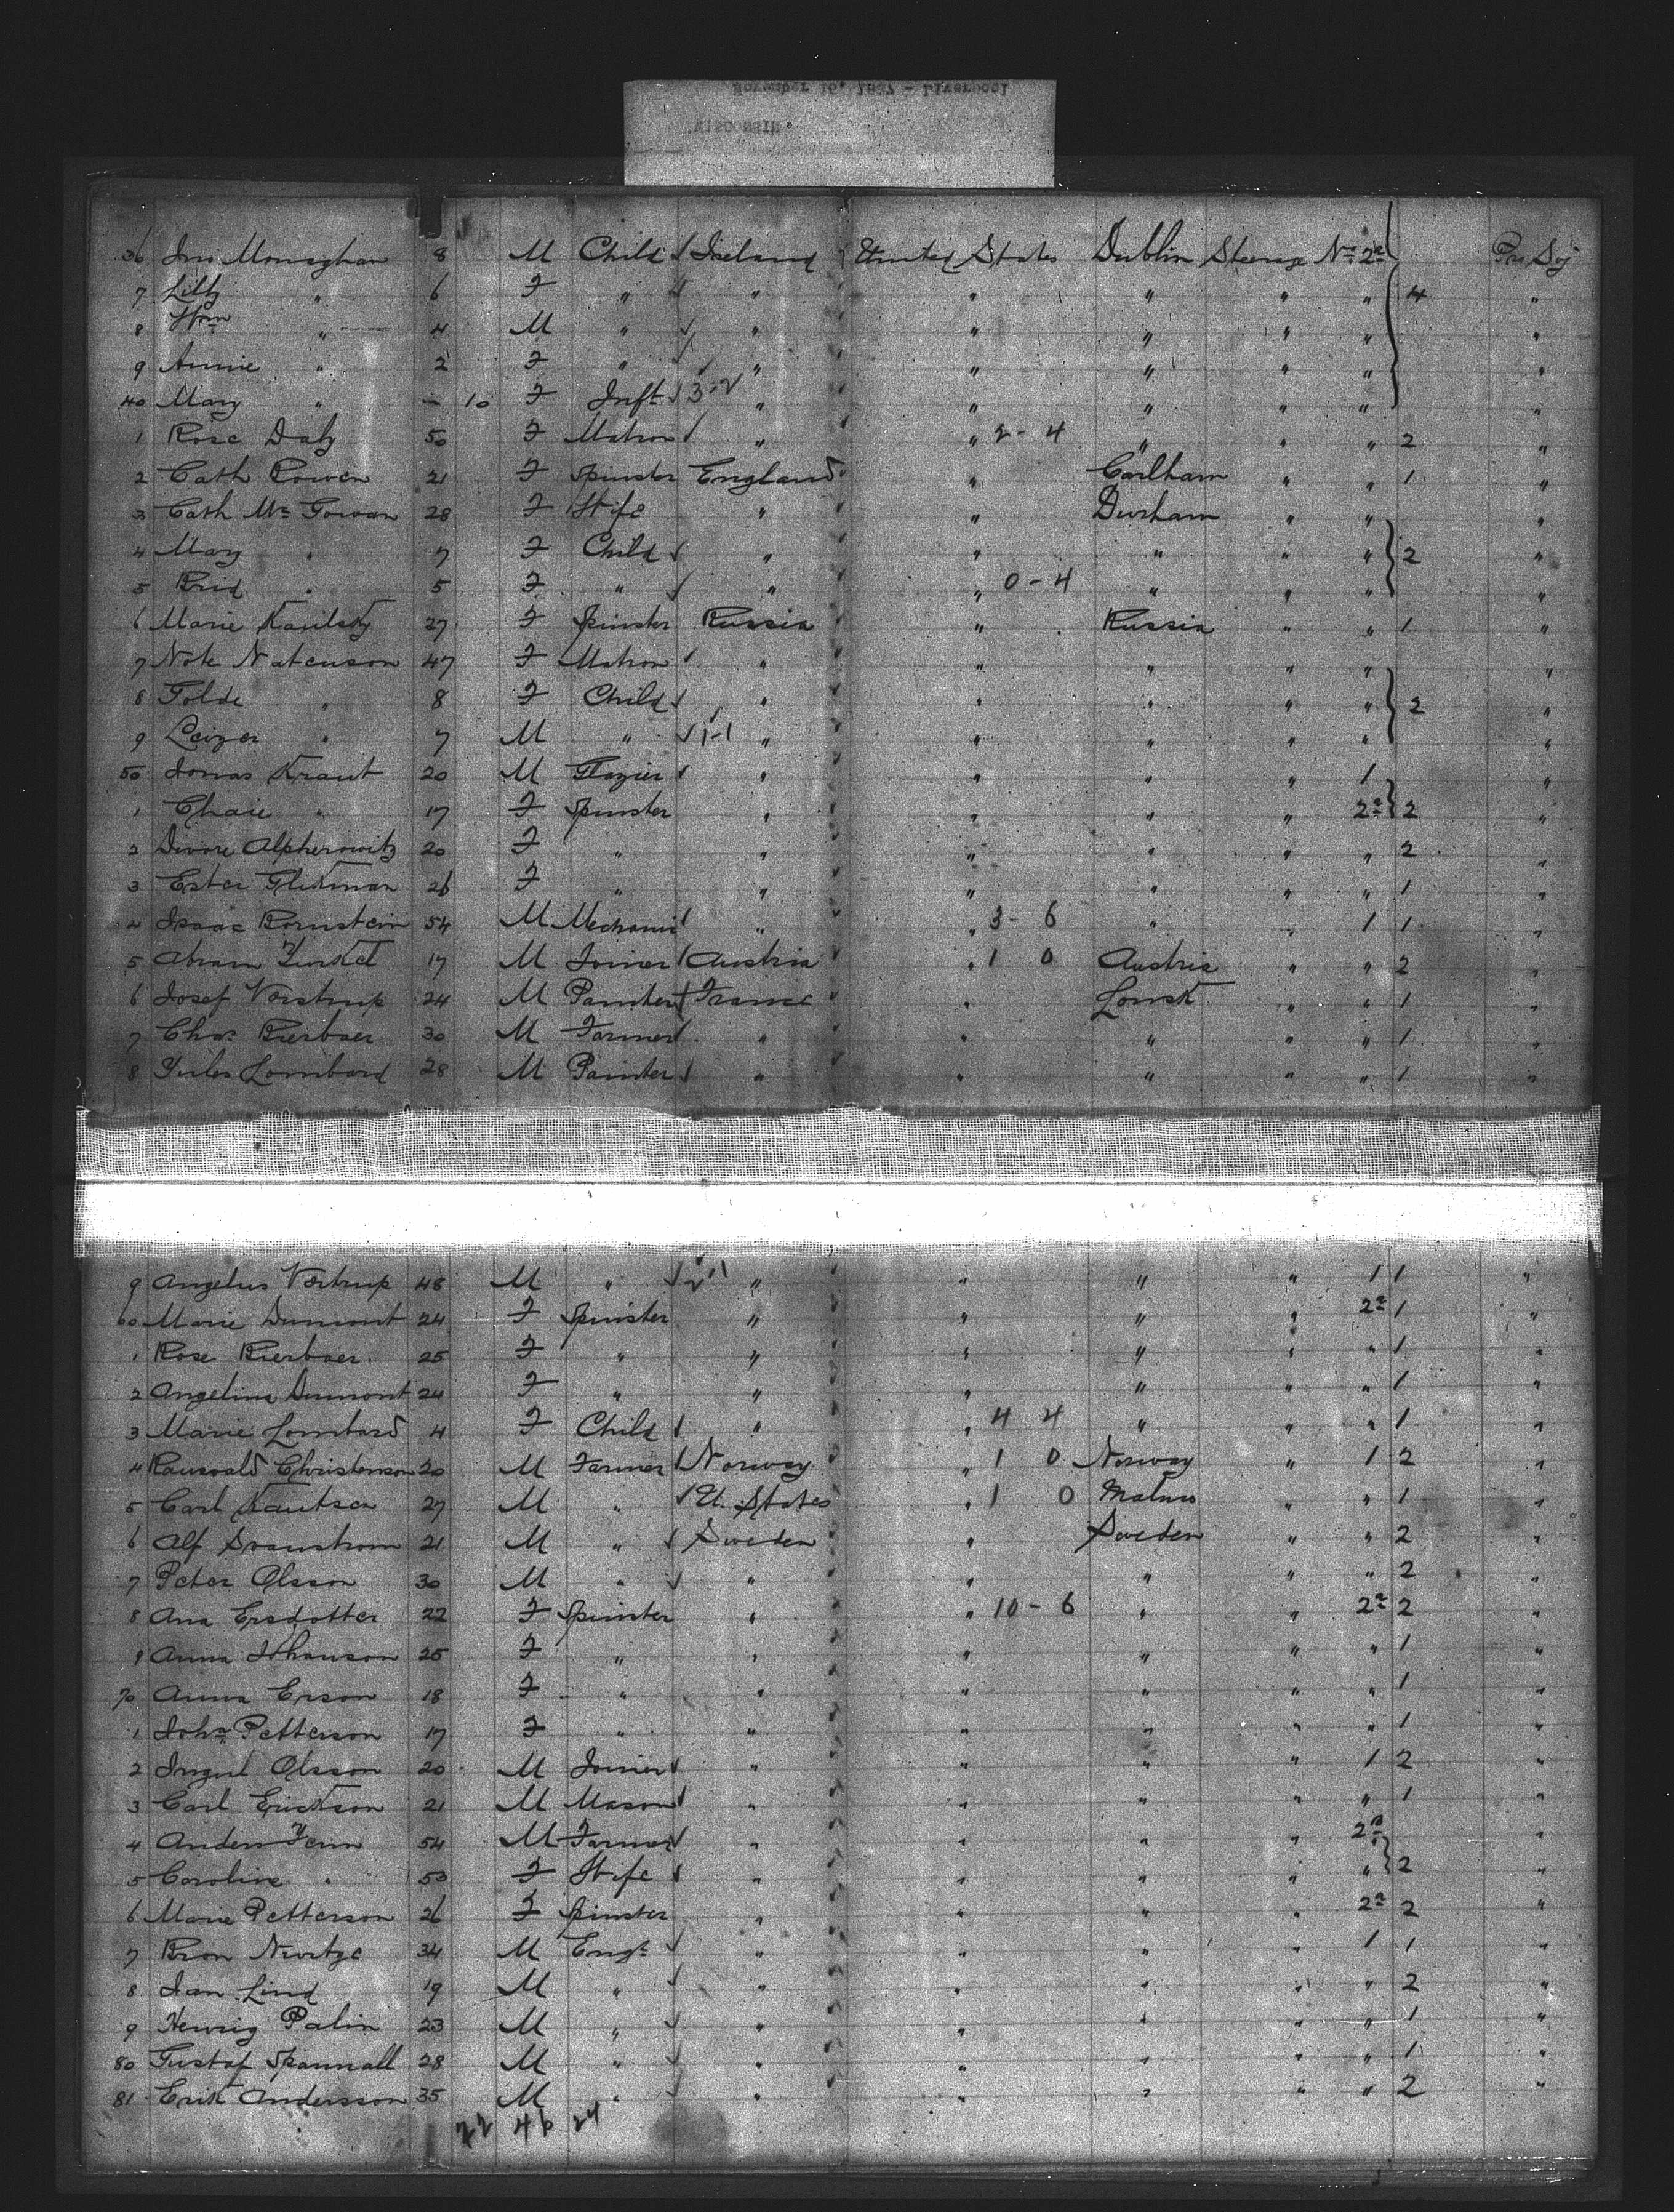 November 16, 1887 - Liverpool
WISCONSIN
36 Jno Monaghan 8 M Child Ireland United States Dublin Steerage No 2a Pro Soj
7 Lilly " 6 F " " " " " " 4 "
8 Wm " 4 M " " " " " " "
9 Annie " 2 F " " " " " " "
40 Mary " - 10 F Inft 3-2 " " " " " "
1 Rose Daly 50 F Matron " " 2-4 " " " 2 "
2 Cath Rowen 21 F Spinster England " " " 1 "
3 Cath Mc Gowan 28 F Wife " " Durham " " "
4 Mary " 7 F Child " " " " " 2 "
5 Brid " 5 F " " " 0-4 " " " "
6 Marie 27 F Spinster Russia " Russia " " 1 "
7 Note Natenson 47 F Matron " " " " " "
8 Golde " 8 F Child " " " " " 2 "
9 Leizer " 7 M " 1-1 " " " " " "
50 Jonas Kraut 20 M Glazier " " " " 1 "
1 Chaie " 17 F Spinster " " " " 2a 2 "
2 Divore Alpherowitz 20 F " " " " " " 2 "
3 Ester 26 F " " " " " " 1 "
4 Isaac Bornstein 54 M Mechanic " " 3-6 " " 1 1 "
5 Abram 17 M Joiner Austria " 1 0 Austria " " 2 "
6 Josef Vortrup 24 M Painter France " " " 1 "
7 Chas Bierbaer 30 M Farmer " " " " " 1 "
8 Jules Lombard 28 M Painter " " " " " 1 "
9 Angelus Vortrup 48 M " 2-1 " " " " 1 1 "
60 Marie Dumont 24 F Spinster " " " " 2a 1 "
1 Rose Bierbaer 25 F " " " " " " 1 "
2 Angelina Dumont 24 F " " " " " " 1 "
3 Marie Lombard 4 F Child " " 4 4 " " " 1 "
4 Christenson 20 M Farmer Norway " 1 0 Norway " 1 2 "
5 Carl 27 M " U. States " 1 0 " " 1 "
6 Alf Svanstrom 21 M " Sweden " Sweden " " 2 "
7 Peter Olsson 30 M " " " " " " 2 "
8 Ana Ersdotter 22 F Spinster " " 10-6 " " 2a 2 "
9 Anna Johanson 25 F " " " " " " 1 "
70 Anna Erson 18 F " " " " " " 1 "
1 Joha Petterson 17 F " " " " " " 1 "
2 Olsson 20 M Joiner " " " " 1 2 "
3 Carl Erickson 21 M Mason " " " " " 1 "
4 Anders 54 M Farmer " " " " 2a "
5 Caroline " 53 F Wife " " " " " 2 "
6 Marie Petterson 26 F Spinster " " " " 2a 2 "
7 34 M Engr " " " " 1 1 "
8 Jan Lind 19 M " " " " " " 2 "
9 Henrig Palin 23 M " " " " " " 1 "
80 Gustaf 28 M " " " " " " 1 "
81 Erik Andersson 35 M " " " " " " 2 "
22 46 24